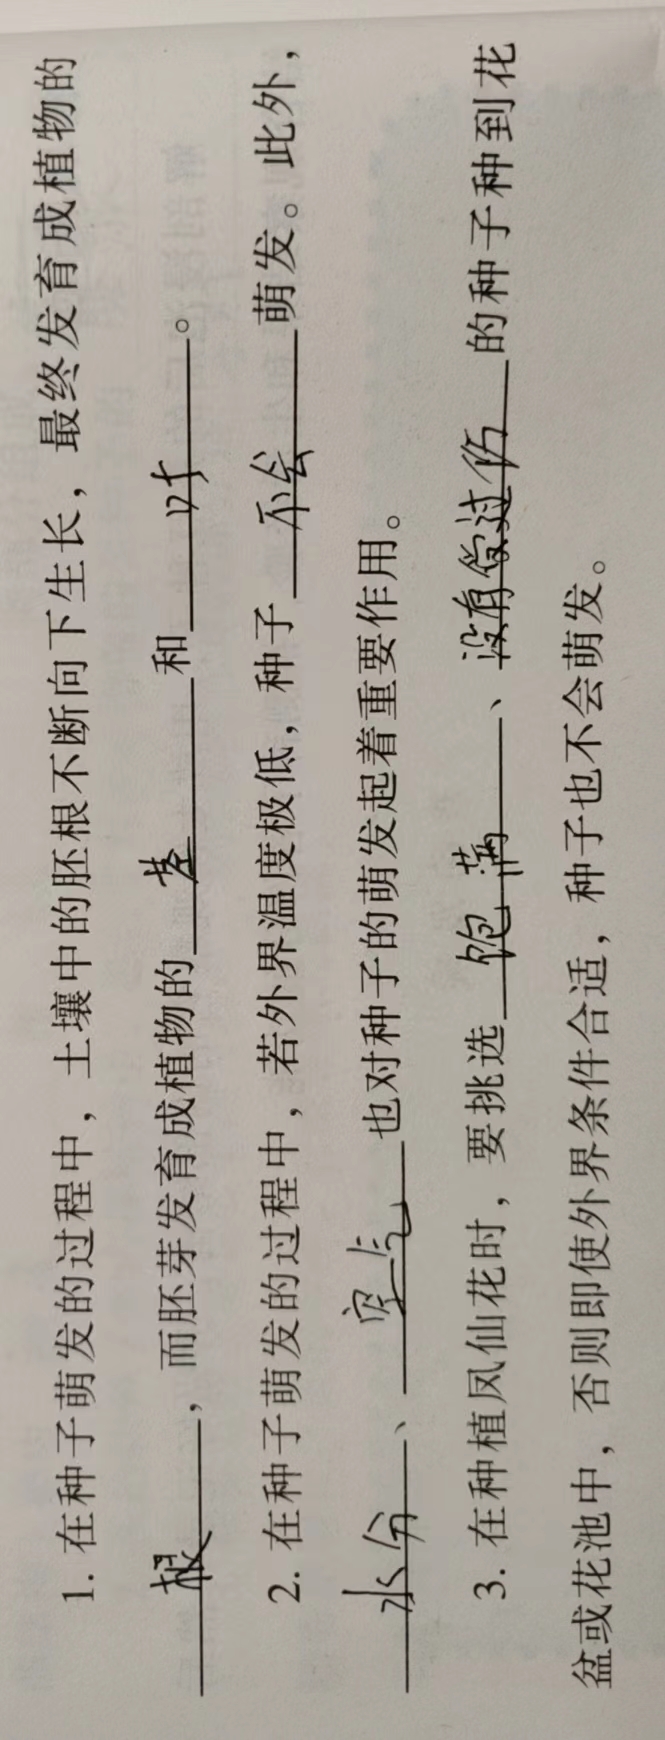 1. 在种子萌发的过程中，土壤中的胚根不断向下生长，最终发育成植物的
根，而胚芽发育成植物的茎和叶。
2. 在种子萌发的过程中，若外界温度极低，种子不会萌发。此外，
水分、空气也对种子的萌发起着重要作用。
3. 在种植凤仙花时，要挑选饱满、没有受过伤的种子种到花
盆或花池中，否则即使外界条件合适，种子也不会萌发。